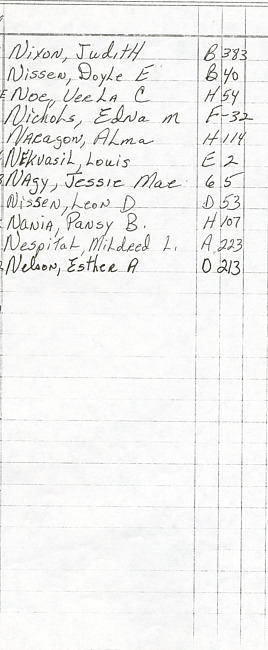 Nixon, Judith B 383
Nissen, Doyle E B 40
Noe, VeeLa C H 54
Nichols, Edna M F-32
Naragon, Alma H 114
Nekvasil, Louis E 2
Nagy, Jessie Mae 6 5
Nissen, Leon D D 53
Nania, Pansy B. H 107
Nespital, Mildred L. A 223
Nelson, Esther A O 213